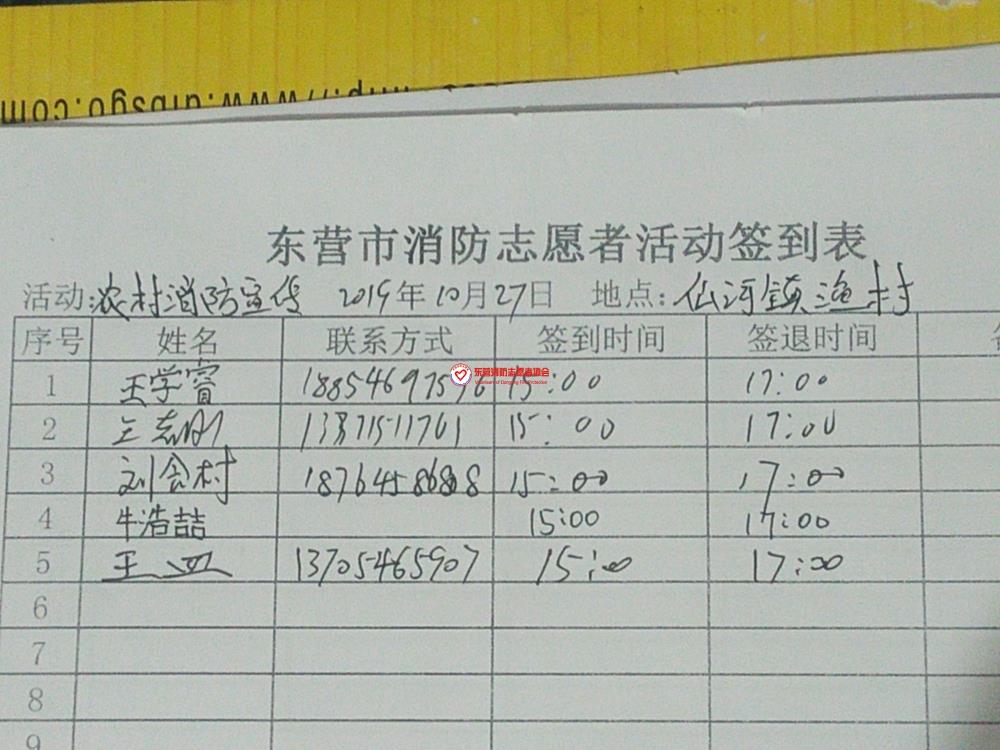 东营市消防志愿者活动签到表
活动:农村消防宣传 2019年10月27日 地点:仙河镇渔村
序号 姓名 联系方式 签到时间 签退时间
1 王学睿 18854697576 15:00 17:00
2 王志刚 13371511761 15:00 17:00
3 刘会村 18764586808 15:00 17:00
4 牛浩喆 15:00 17:00
5 王 13705465907 15:00 17:00
6
7
8
9
东营消防志愿者协会